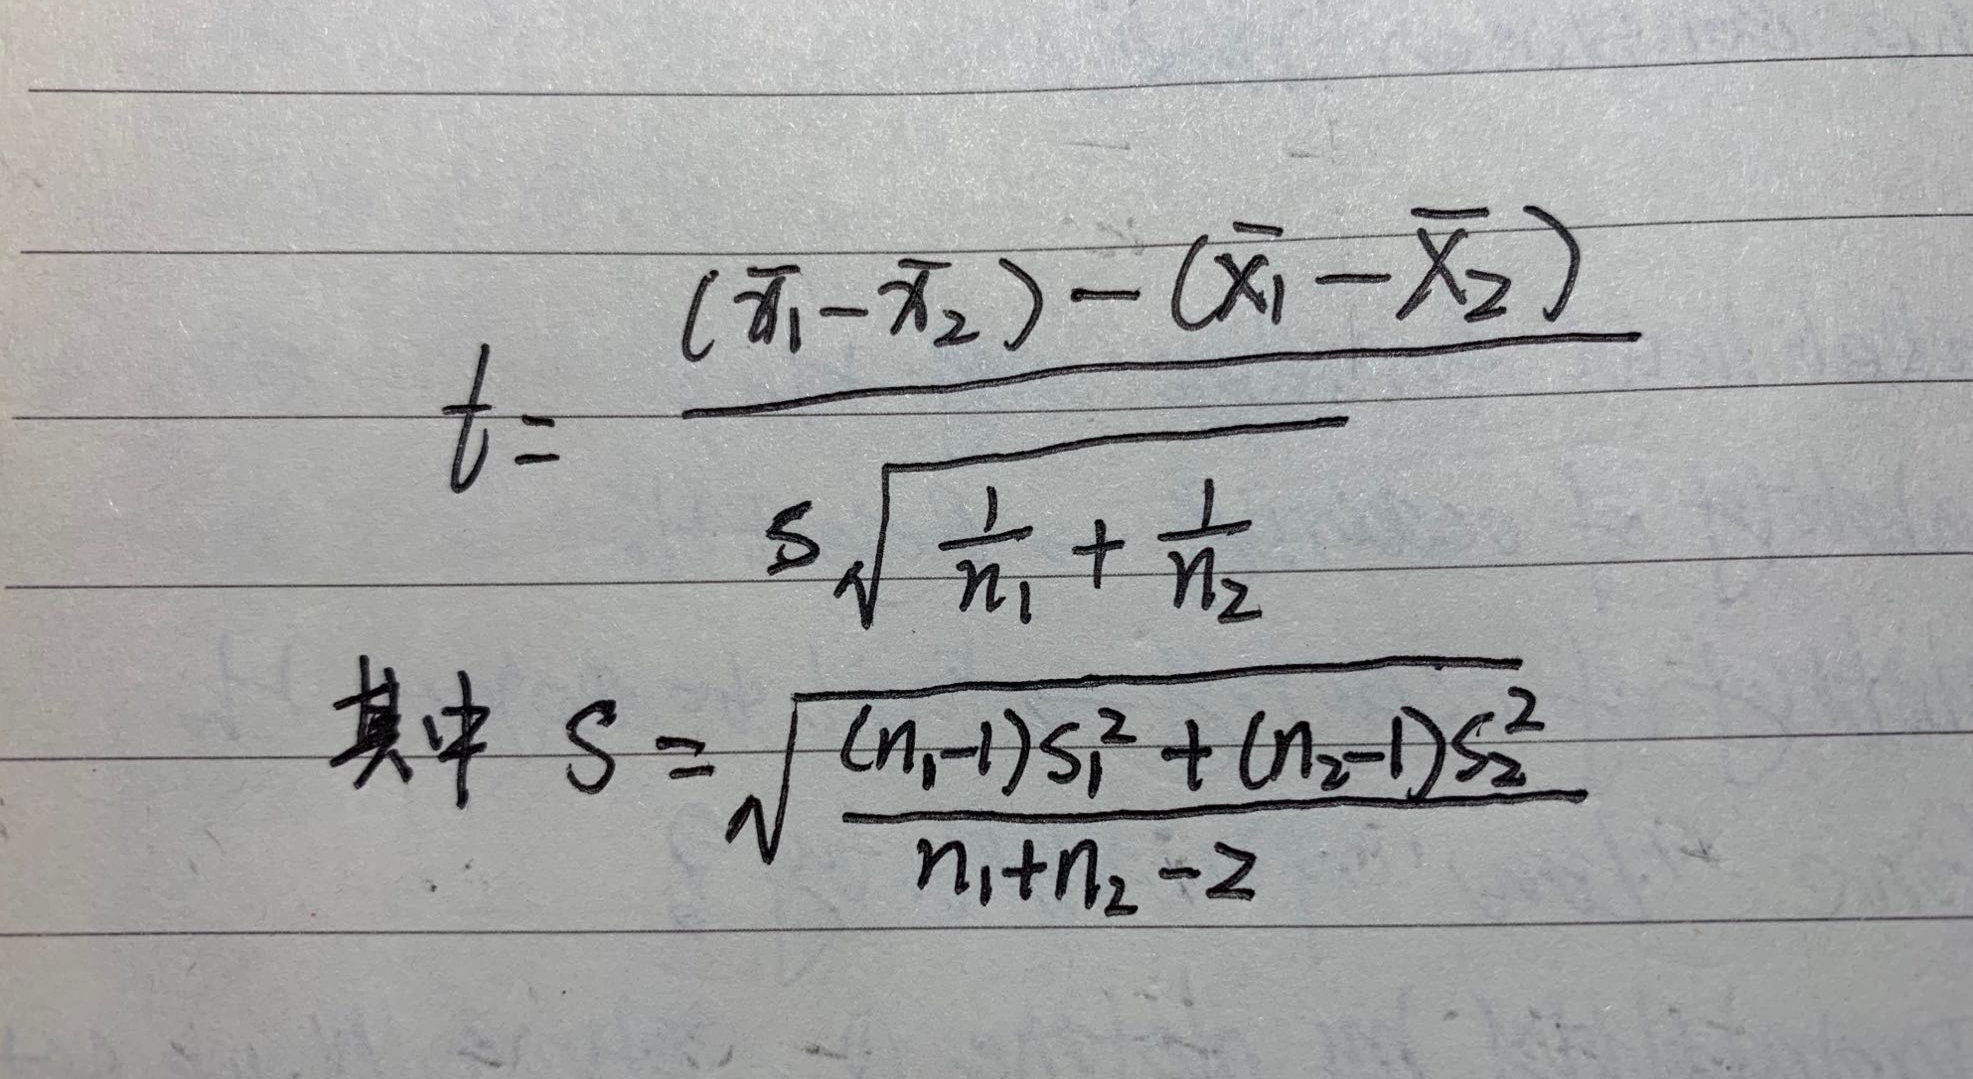 t = \frac{(\bar{x}_1 - \bar{x}_2) - (\bar{X}_1 - \bar{X}_2)}{s\sqrt{\frac{1}{n_1} + \frac{1}{n_2}}}
其中 S = \sqrt{\frac{(n_1-1)S_1^2 + (n_2-1)S_2^2}{n_1+n_2-2}}